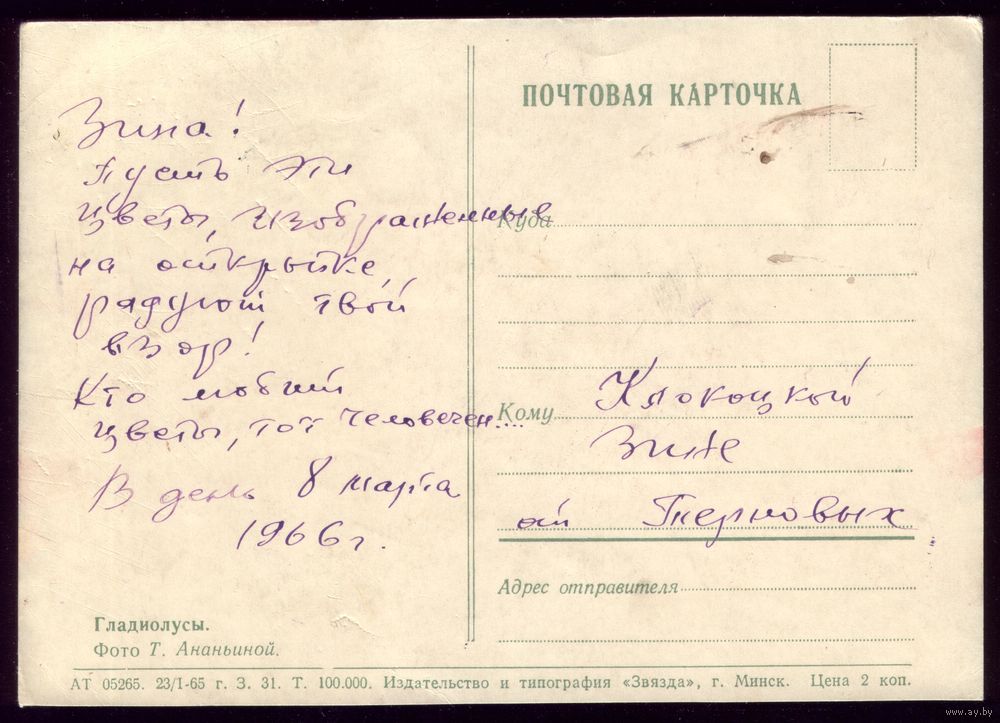 Зина!
Пусть эти
цветы, изображенные
на открытке,
радуют твой
взор!
Кто любит
цветы, тот человечен....
В день 8 марта
1966 г.
Гладиолусы.
Фото Т. Ананьиной.
ПОЧТОВАЯ КАРТОЧКА
Куда
Кому Клокоцкой
Зине
от Терновых
Адрес отправителя
АТ 05265. 23/I-65 г. З. 31. Т. 100.000. Издательство и типография «Звязда», г. Минск. Цена 2 коп.
www.ay.by